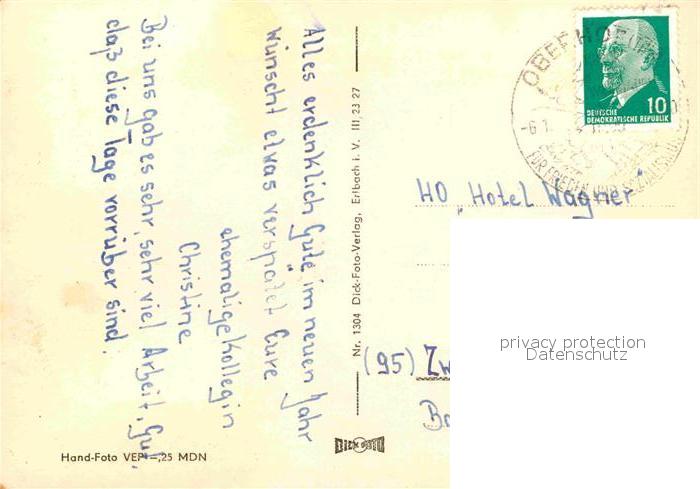 Alles erdenklich Gute im neuen Jahr
wünscht etwas verspätet Eure
ehemalige Kollegin
Christine
Bei uns gab es sehr, sehr viel Arbeit, Gut,
daß diese Tage vorrüber sind.
Nr. 1304 Dick-Foto-Verlag, Erlbach i. V. III 23 27
Hand-Foto VEP —,25 MDN
DICK FOTO
OBERHOF
-6.1.
FÜR FRIEDEN UND SOZIALISMUS
DEUTSCHE
DEMOKRATISCHE REPUBLIK
10
HO „Hotel Wagner"
(95) Zw
privacy protection
Datenschutz